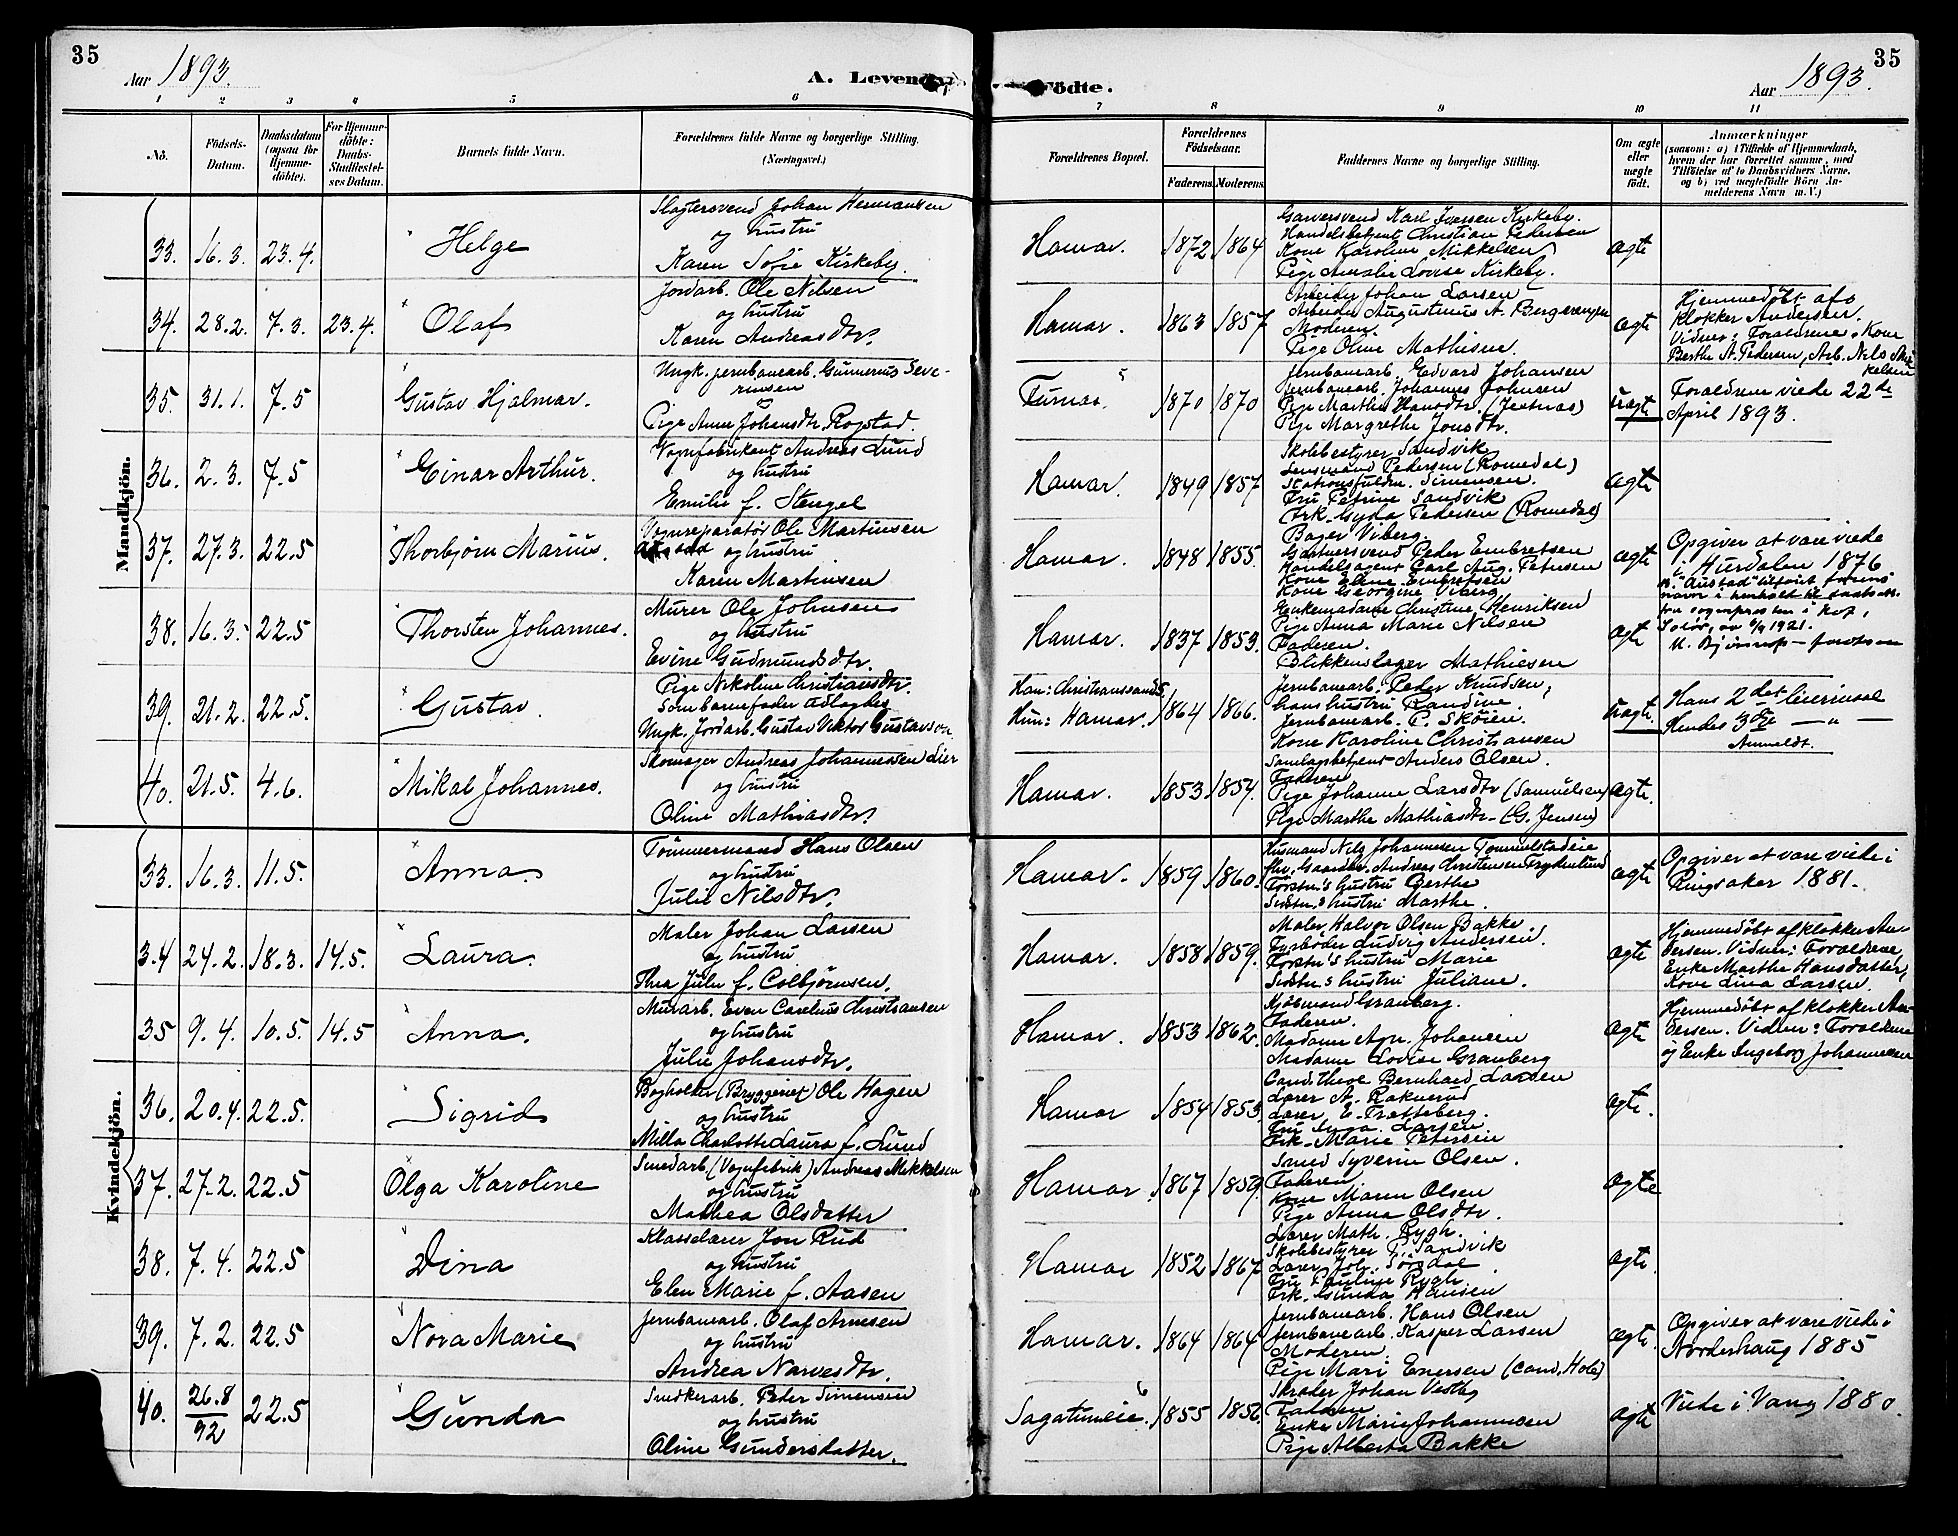 35
Aar 1893.
A. Levende
Födte.
Aar 1893.
35
1 2 3 4 5 6 7 8 9 10 11
No.
Födsels-
Datum.
Daabsdatum
(ogsaa for
Hjemme-
döbte).
For Hjemme-
döbte:
Daabs-
Stadfæstel-
ses Datum.
Barnets fulde Navn.
Forældrenes fulde Navne og borgerlige Stilling.
(Næringsvei.)
Forældrenes Bopæl.
Forældrenes
Födselsaar.
Faderens. Moderens.
Faddernes Navne og borgerlige Stilling.
Om ægte
eller
uægte
født.
Anmærkninger
(saasom: a) i Tilfælde af Hjemmedaab,
hvem der har forrettet samme, med
Tilföielse af to Daabsvidners Navne,
og b) ved uægtefödte Börn An-
melderens Navn m. V.)
Mandkjön.
33. 16.3. 23.4. Helge
Slagtersvend Johan Hermansen
og hustru
Karen Sofie Kirkeby.
Hamar. 1872 1864
Garversvend Karl Iversen Kirkeby.
Handelsbetjent Christian Pedersen
Kone Karoline Mikkelsen
Pige Amalie Lovise Kirkeby.
ægte
34. 28.2. 7.3. 23.4. Olaf
Jordarb. Ole Nilsen
og hustru
Karen Andreasdtr.
Hamar. 1863 1857
Arbeider Johan Larsen
Arbeider Augustinus A. Bergerengen
Moderen.
Pige Oline Mathisen.
ægte
Hjemmedøbt af
Klokker Andersen.
Vidner: Forældrene, Kone
Berthe A. Pedersen, Arb. Nils Mik-
kelsen
35. 31.1. 7.5 Gustav Hjalmar.
Ungk. jernbanearb. Gunnerius Seve-
rinsen
og
Pige Anne Johansdtr. Rogstad.
Furnæs. 1870 1870
Jernbanearb. Edvard Johansen
Jernbanearb. Johannes Johnsen
Pige Marthe Hansdtr. (Jevtnæs)
Pige Margrethe Jonsdtr.
uægte
Forældrene viede 22de
April 1893.
36. 2.3. 7.5 Einar Arthur.
Vognfabrikant Andreas Lund
og hustru
Emilie f. Stengel
Hamar. 1849 1857
Skolebestyrer Sandvik
Lensmand Pedersen (Romedal)
Stationsfuldm. Simensen.
Fru Petrine Sandvik
Frk. Gyda Pedersen (Romedal)
ægte
37. 27.3. 22.5 Thorbjørn Marius.
Vognreparatør Ole Martinsen
og hustru
Karen Martinsen
Hamar. 1848 1855.
Bager Viberg.
Garversvend Peder Embretsen
Handelsagent Carl Aug. Petersen
Kone Eline Embretsen
Kone Georgine Viberg
ægte
Opgiver at være viede
i Hurdalen 1876
N. "Austad" tilføiet som
navn i henhold til
fra sognepresten i Hof,
Solør, av 1921.
38. 16.3. 22.5 Thorsten Johannes.
Murer Ole Johnsen
og hustru
Evine Gudmundsdtr.
Hamar. 1837 1853.
Enkemadame Christine Henriksen
Pige Anna Marie Nilsen
Faderen.
Blikkenslager Mathiesen
ægte
39. 21.2. 22.5. Gustav.
Pige Nikoline Christiansdtr.
Som barnefader udlagdes
Ungk. Jordarb. Gustav Viktor Gustavson
Han: Christianssand S.
Hun: Hamar. 1864 1866.
Jernbanearb. Peder Knudsen,
hans hustru Randine.
Jernbanearb. P. Skøien.
Kone Karoline Christiansen
uægte.
Hans 2det leiermaal
Hendes 3die — " —
Anmeldt.
40. 21.5. 4.6. Mikal Johannes.
Skomager Andreas Johannessen Lier
og hustru
Oline Mathiasdtr.
Hamar. 1853 1854.
Samlagsbetjent Anders Olsen.
Faderen
Pige Johanne Larsdtr (Samuelsen)
Pige Marthe Mathiasdtr. (G. Jensen)
ægte.
Kvindekjön.
33. 16.3. 11.5. Anna.
Tømmermand Hans Olsen
og hustru
Julie Nilsdtr.
Hamar. 1859 1860.
Husmand Nils Johannesen Tommelstadeie
Andreas Christensen Frydenlund
Førstn's hustru Berthe
Sidstn's hustru Marthe.
ægte
Opgiver at være viede i
Ringsaker 1881.
34 24.2. 18.3. 14.5. Laura.
Maler Johan Larsen
og hustru
Thea Julie f. Colbjørnsen.
Hamar. 1858 1859.
Maler Halvor Olsen Bakke
Fyrbøder Ludvig Andersen.
Førstn's hustru Marie
Sidstn's hustru Juliane.
ægte
Hjemmedøbt af klokker An-
dersen. Vidner: Forældrene,
Enke Marthe Hansdatter,
Kone Lina Larsen.
35 9.4. 10.5. 14.5 Anna.
Murarb. Even Carelius Christiansen
og hustru
Julie Johansdtr.
Hamar. 1853 1862.
Kjøbmand Granberg.
Faderen.
Madame Agn. Johansen
Madame Lovise Granberg
ægte
Hjemmedøbt af klokker An-
dersen. Vidner: Forældrene
og Enke Ingeborg Johannesen
36. 20.4. 22.5. Sigrid
Bogholder (Bryggeriet) Ole Hagen
og hustru
Milla Charlotte Laura f. Lund
Hamar 1854 1853
Cand. theol. Bernhard Larsen
Lærer A. Raknerud
Lærer E. Trætteberg.
Fru Inga Larsen
Frk. Marie Petersen
ægte.
37. 27.2. 22.5 Olga Karoline
Smedarb. (Vognfabrik) Andreas Mikkelsen
og hustru
Mathea Olsdatter
Hamar 1867 1859.
Smed Syverin Olsen.
Faderen
Kone Maren Olsen
Pige Anna Olsdtr.
ægte
38. 7.4. 22.5 Dina
Klasselærer Jon Rud
og hustru
Elen Marie f. Aasen
Hamar 1852 1867
Lærer Math. Rygh.
Skolebestyrer P. Sandvik
Lærer Joh. Sørdal.
Fru Pauline Rygh.
Frk. Gunda Hansen
ægte.
39. 7.2. 22.5 Nora Marie
Jernbanearb. Olaf Arnesen
og hustru
Andrea Narvesdtr.
Hamar. 1864 1864
Jernbanearb. Hans Olsen
Jernbanearb. Kasper Larsen
Moderen
Pige Mari Enersen (cand. Hole)
ægte.
Opgiver at være viede i
Norderhaug 1885
40. 26.8/92 22.5 Gunda
Snedkerarb. Peder Simensen
og hustru
Oline Gundersdatter.
Sagatuneie. 1855 1856.
Skræder Johan Vestby
Faderen
Enke Marie Johannesen
Pige Alberta Bakke
ægte
Viede i Vang 1880.